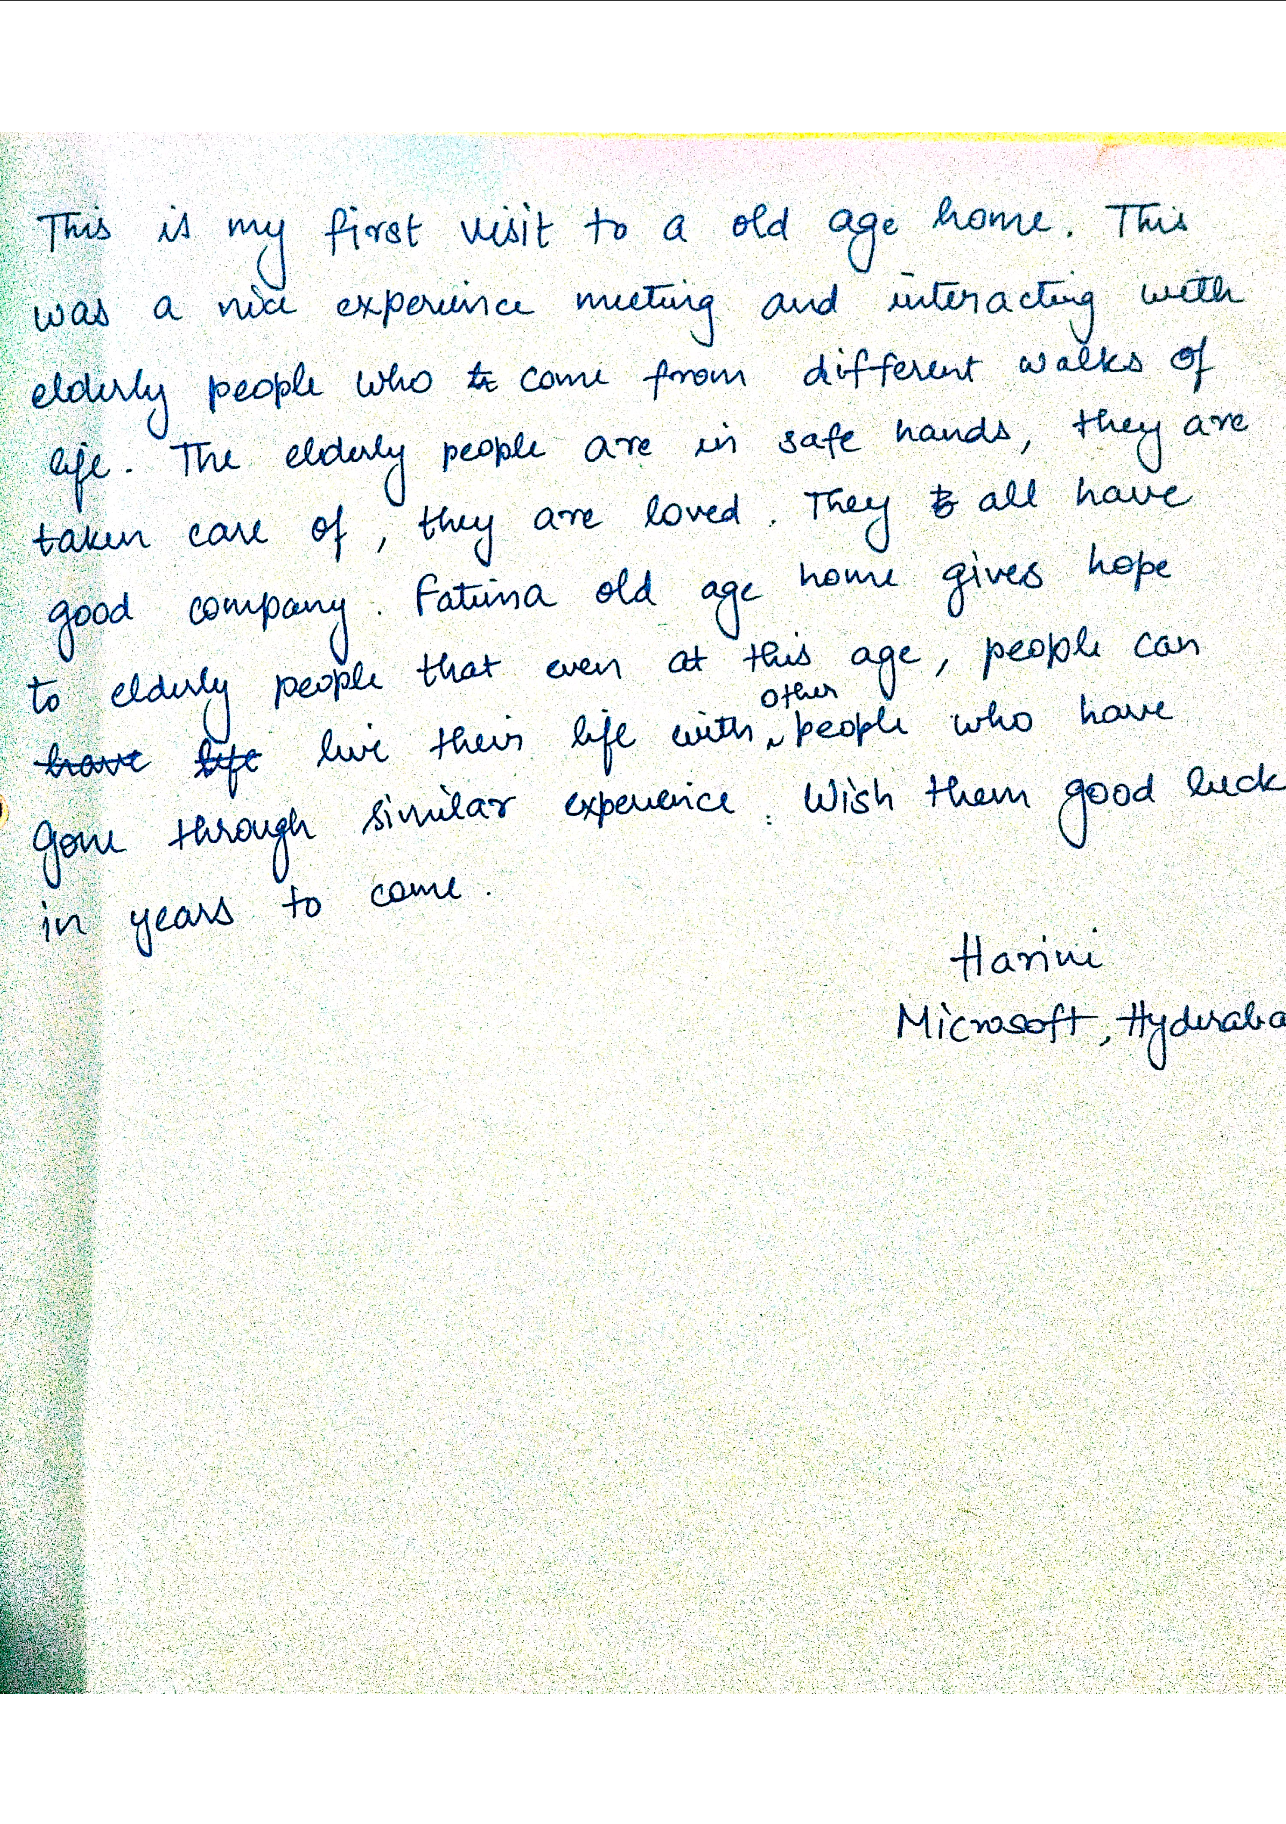 This is my first visit to a old age home. This
was a nice experience meeting and interacting with
elderly people who come from different walks of
life. The elderly people are in safe hands, they are
taken care of, they are loved. They all have
good company. Fatima old age home gives hope
to elderly people that even at this age, people can
have life live their life with other people who have
gone through similar experience. Wish them good luck
in years to come.
Harini
Microsoft, Hyderaba